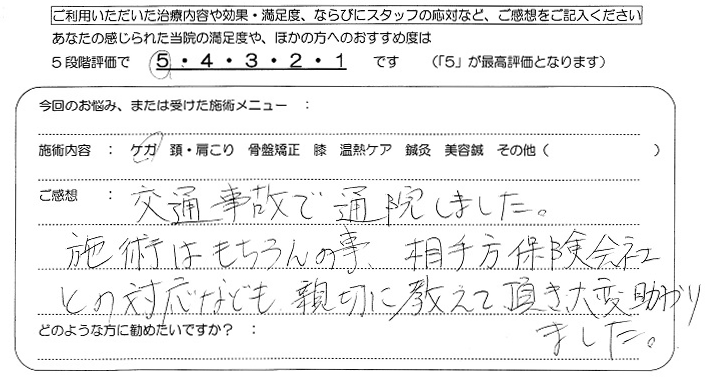 ご利用いただいた治療内容や効果・満足度、ならびにスタッフの応対など、ご感想をご記入ください
あなたの感じられた当院の満足度や、ほかの方へのおすすめ度は
5段階評価で 5・4・3・2・1 です (「5」が最高評価となります)
今回のお悩み、または受けた施術メニュー :
施術内容 : ケガ 頚・肩こり 骨盤矯正 膝 温熱ケア 鍼灸 美容鍼 その他( )
ご感想 : 交通事故で通院しました。
施術はもちろんの事、相手方保険会社
との対応なども親切に教えて頂き大変助かり
ました。
どのような方に勧めたいですか? :